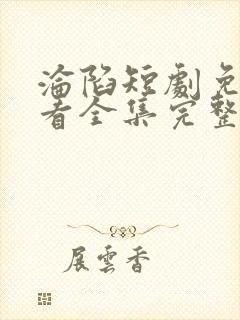 淪陷短劇免
看全集完整
展雲香